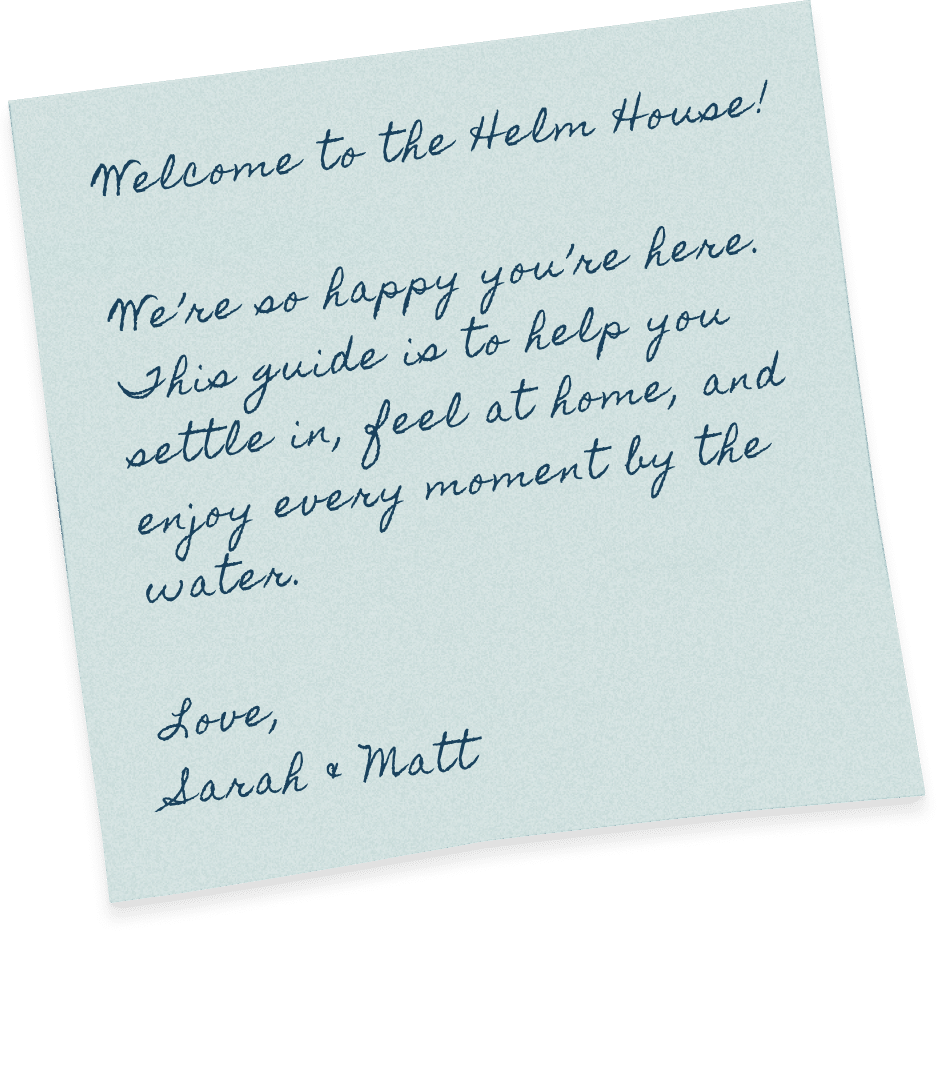 Welcome to the Helm House!
We're so happy you're here.
This guide is to help you
settle in, feel at home, and
enjoy every moment by the
water.
Love,
Sarah & Matt